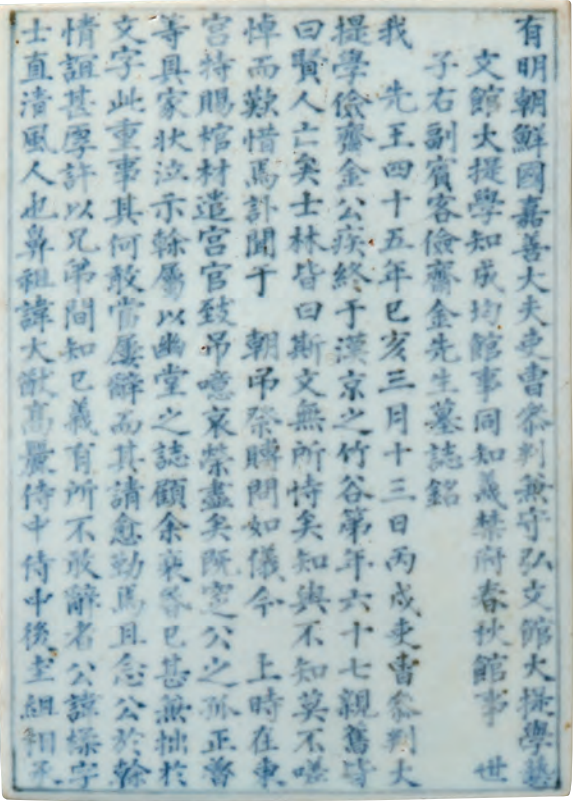 有明朝鮮國嘉善大夫吏曹參判兼守弘文館大提學藝
文館大提學知成均館事同知義禁府春秋館事 世
子右副賓客儉齋金先生墓誌銘
我 先王四十五年己亥三月十三日丙戌吏曹參判大
提學儉齋金公疾終于漢京之竹谷第年六十七親舊皆
曰賢人亡矣士林皆曰斯文無所恃矣知與不知莫不嗟
悼而歎惜焉訃聞于 朝弔祭賻問如儀今 上時在東
宮特賜棺材遣宮官致弔噫哀榮盡矣旣窆公之孤正魯
等具家狀泣示榦屬以幽堂之誌顧余衰昏已甚無拙於
文字此重事其何敢當屢辭而其請愈勤焉且念公於榦
情誼甚厚許以兄弟間知己義有所不敢辭者公諱楺字
士直淸風人也鼻祖諱大猷高麗侍中侍中後圭組相